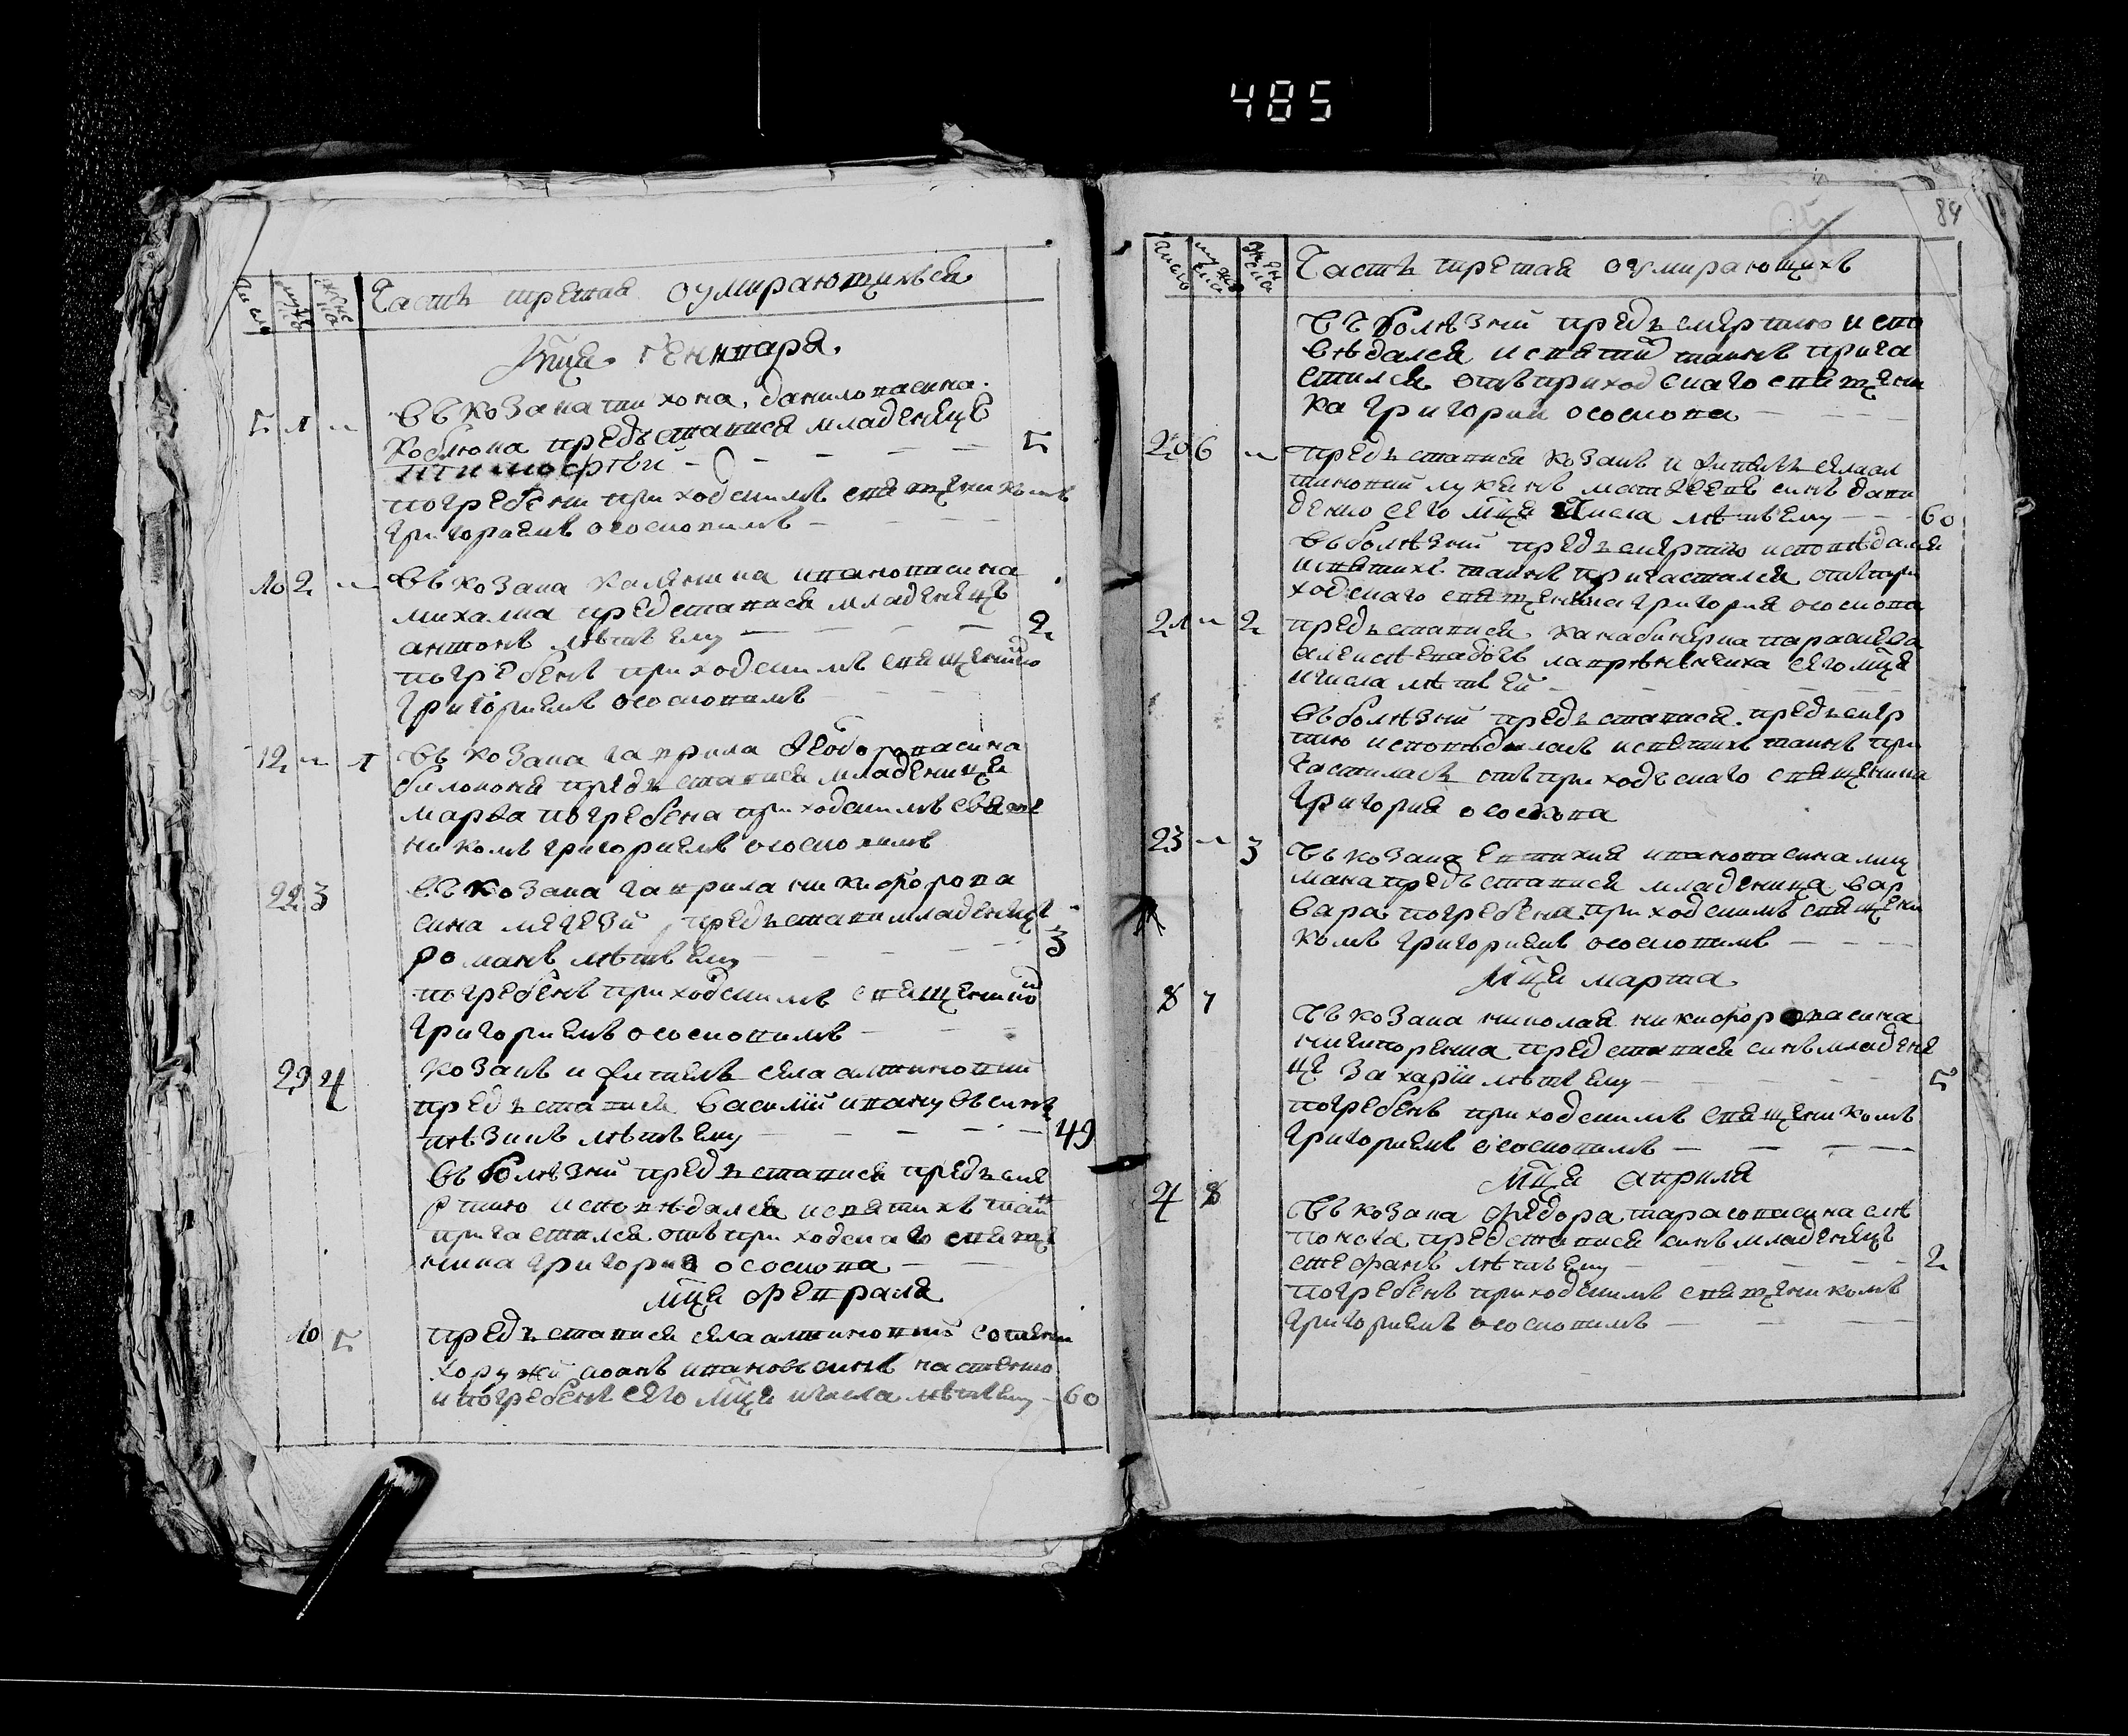 485
84
Часть третая оумирающихъся
Мца Геннваря.
5 1 Въ козака тихона данилова сина
Коблюка предъставися младенецъ
тимофѣй 5
погребени приходскимъ священикомъ
Григориемъ Ососковимъ
10 2 Въ козака иванова сина
михалка представися младенецъ
антонъ лѣтъ ему 2
погребенъ приходскимъ священико
Григориемъ Ососковимъ
12 1 Въ козака гаврила Ѳеодорова сина
предъставися младеница
марѳа погребена приходскимъ
никомъ григориемъ ососковимъ
22 3 Въ козака гаврила никифорова
сина предъстави младенецъ
романъ лѣтъ ему 3
погребенъ приходскимъ священико
григориемъ ососковимъ
29 4 козакъ и житель села
предъставися василій ивановъ синъ
лѣтъ ему 49
въ болѣзни предъставися предъсме
ртию исповѣдался и святихъ таин
причастился отъ приходскаго свяще
ника григория ососкова
мца февраля
10 5 предъставися села сотени
хоружй иоанъ ивановъ синъ
и погребенъ сего мца и числа лѣтъ ему 60
Часть третая оумирающихъ
въ болѣзній предъ смертию испо
вѣдался и святий таинъ прича
стился отъ приходскаго священи
ка григория ососкова
20 6 предъставися козакъ и житель села
лукинъ синъ
сего мца числа лѣтъ ему 60
въ болѣзній предъ смертию исповѣдался
и святихъ таинъ причастился отъ при
ходскаго священика григория ососкова
21 2 предъставися параскева
сего мца
и числа лѣтъ ей
въ болѣзній предъставися. предъ смер
тию исповѣдалась и святихъ таинъ при
частилась отъ приходъскаго священика
григория ососкова
23 3 Въ козака Евтихия иванова сина
предъставися младеница вар
вара погребена приходскимъ священи
комъ григориемъ ососковимъ
Мца марта
8 7 Въ козака николая никифорова сина
представися синъ младене
цъ Захарій лѣтъ ему 5
погребенъ приходскимъ священикомъ
григориемъ ососковимъ
Мца априля
4 8 Въ козака Федора тарасова сина
представися синъ младенецъ
стефанъ лѣтъ ему 2
погребенъ приходскимъ священикомъ
григориемъ ососковимъ